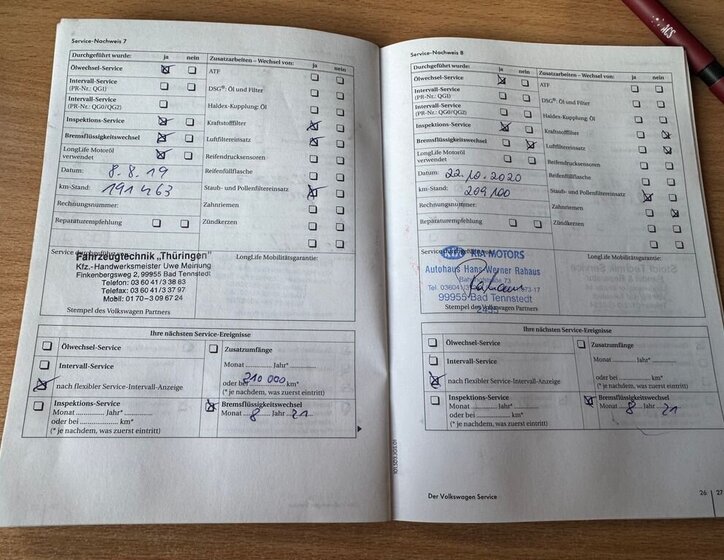 Service-Nachweis 7
Durchgeführt wurde: ja nein
Ölwechsel-Service
Intervall-Service
(PR-Nr.: QG1)
Intervall-Service
(PR-Nr.: QG0/QG2)
Inspektions-Service
Bremsflüssigkeitswechsel
LongLife Motoröl
verwendet
Datum: 8.8.19
km-Stand: 191463
Rechnungsnummer:
Reparaturempfehlung
Zusatzarbeiten – Wechsel von: ja nein
ATF
DSG®: Öl und Filter
Haldex-Kupplung: Öl
Kraftstofffilter
Luftfiltereinsatz
Reifendrucksensoren
Reifenfüllflasche
Staub- und Pollenfiltereinsatz
Zahnriemen
Zündkerzen
Service durchgeführt
Fahrzeugtechnik „Thüringen"
Kfz.-Handwerksmeister Uwe Meinung
Finkenbergsweg 2, 99955 Bad Tennstedt
Telefon: 03 60 41/3 38 63
Telefax: 03 60 41/3 37 97
Mobil: 01 70–3 09 67 24
Stempel des Volkswagen Partners
LongLife Mobilitätsgarantie:
Ihre nächsten Service-Ereignisse
Ölwechsel-Service
Intervall-Service
nach flexibler Service-Intervall-Anzeige
Zusatzumfänge
Monat Jahr*
oder bei 210 000 km*
(* je nachdem, was zuerst eintritt)
Inspektions-Service
Monat Jahr*
oder bei km*
(* je nachdem, was zuerst eintritt)
Bremsflüssigkeitswechsel
Monat 8 Jahr 21
Service-Nachweis 8
Durchgeführt wurde: ja nein
Ölwechsel-Service
Intervall-Service
(PR-Nr.: QG1)
Intervall-Service
(PR-Nr.: QG0/QG2)
Inspektions-Service
Bremsflüssigkeitswechsel
LongLife Motoröl
verwendet
Datum: 22.10.2020
km-Stand: 209 100
Rechnungsnummer:
Reparaturempfehlung
Zusatzarbeiten – Wechsel von: ja nein
ATF
DSG®: Öl und Filter
Haldex-Kupplung: Öl
Kraftstofffilter
Luftfiltereinsatz
Reifendrucksensoren
Reifenfüllflasche
Staub- und Pollenfiltereinsatz
Zahnriemen
Zündkerzen
KIA KIA MOTORS
Autohaus Hans-Werner Rahaus
Tel. 036041/
99955 Bad Tennstedt
Stempel des Volkswagen Partners
LongLife Mobilitätsgarantie:
Ihre nächsten Service-Ereignisse
Ölwechsel-Service
Intervall-Service
nach flexibler Service-Intervall-Anzeige
Zusatzumfänge
Monat Jahr*
oder bei km*
(* je nachdem, was zuerst eintritt)
Inspektions-Service
Monat Jahr*
oder bei km*
(* je nachdem, was zuerst eintritt)
Bremsflüssigkeitswechsel
Monat 8 Jahr 21
Der Volkswagen Service
26 27